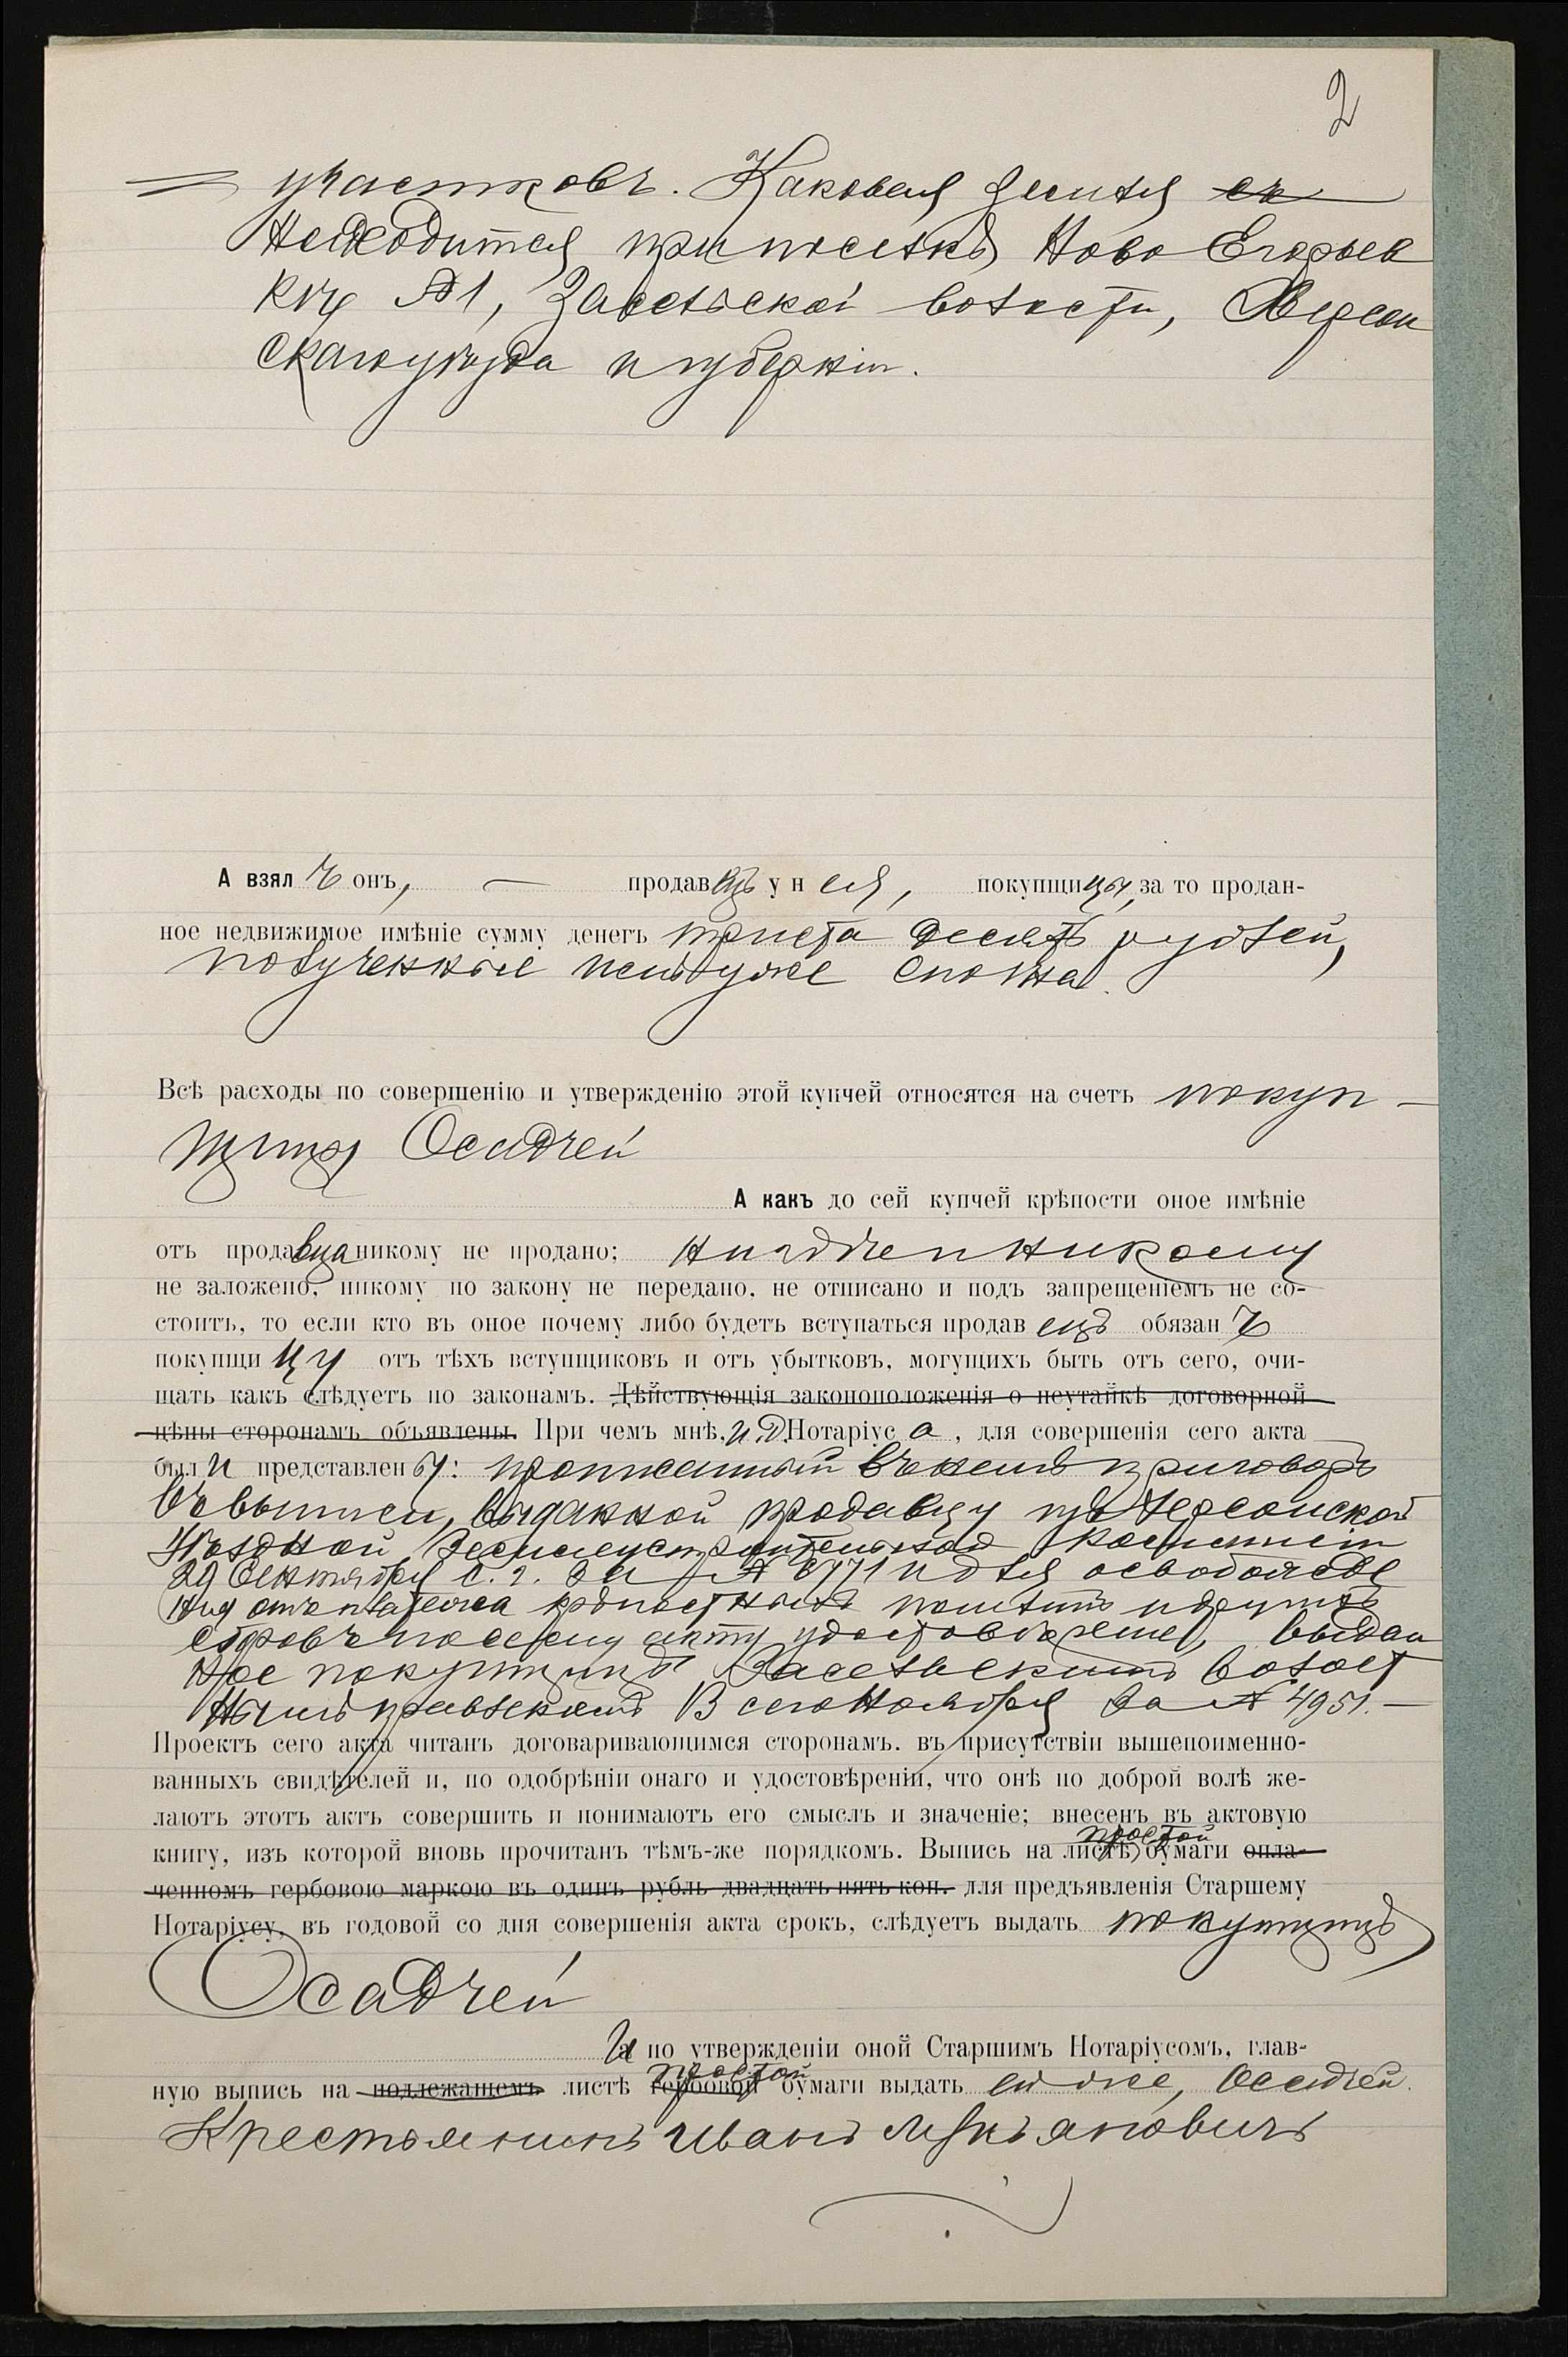 2
участковъ. Каковая земля
находится при поселкѣ Ново Егорьев
кѣ № 1, Засельской волости, Херсон
скаго уѣзда и губерніи.
А взялъ онъ, — продавецъ у нея, покупщицы, за то продан-
ное недвижимое имѣніе сумму денегъ триста десять рублей,
полученные имъ уже сполна.
Всѣ расходы по совершенію и утвержденію этой купчей относятся на счетъ покуп-
щицы Осадчей
А какъ до сей купчей крѣпости оное имѣніе
отъ продавца никому не продано; нигдѣ и никому
не заложено, никому по закону не передано, не отписано и подъ запрещеніемъ не со-
стоитъ, то если кто въ оное почему либо будетъ вступаться продавецъ обязанъ
покупщицу отъ тѣхъ вступщиковъ и отъ убытковъ, могущихъ быть отъ сего, очи-
щать какъ слѣдуетъ по законамъ. Дѣйствующія законоположенія о неутайкѣ договорной
цѣны сторонамъ объявлены. При чемъ мнѣ, И. Д. Нотаріуса, для совершенія сего акта
были представлены: прописанный въ немъ приговоръ
въ выписи, выданной продавцу изъ Херсонской
Уѣздной Землеустроительной Коммисіи
29 Сентября с. г. за № 6771 и для освобожде
нія отъ платежа крѣпостныхъ пошлинъ и другихъ
сборовъ по сему акту удостовѣреніе, выдан
ное покупщицѣ Засельскимъ волост
нымъ правленіемъ 13 сего Ноября за № 4951. —
Проектъ сего акта читанъ договаривающимся сторонамъ. въ присутствіи вышепоименно-
ванныхъ свидѣтелей и, по одобрѣніи онаго и удостовѣреніи, что онѣ по доброй волѣ же-
лаютъ этотъ актъ совершить и понимаютъ его смыслъ и значеніе; внесенъ въ актовую
простой
книгу, изъ которой вновь прочитанъ тѣмъ-же порядкомъ. Выпись на листѣ бумаги опла-
ченномъ гербовою маркою въ одинъ рубль двадцать пять коп. для предъявленія Старшему
Нотаріусу, въ годовой со дня совершенія акта срокъ, слѣдуетъ выдать покупщицѣ
Осадчей
И по утвержденіи оной Старшимъ Нотаріусомъ, глав-
простой
ную выпись на подлежащемъ листѣ гербовой бумаги выдать ей же, Осадчей.
Крестьянинъ Иванъ Лукьяновичъ